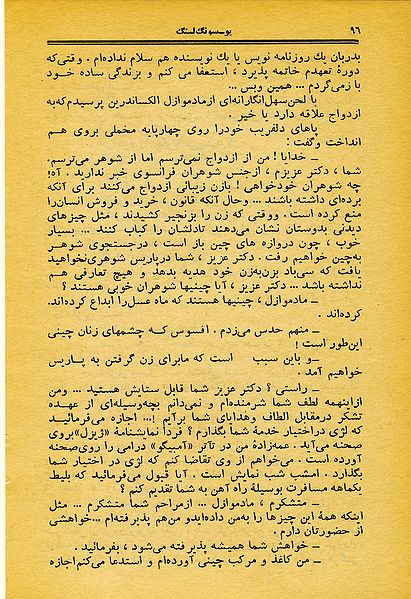 ۹۶
یو-سونگ-لسنگ
بدربان یك روزنامه نویس یا یك نویسنده هم سلام نداده‌ام . وقتی‌که
دورهٔ تعهدم خاتمه پذیرد ، استعفا می کنم و بزندگی ساده خـود
بازمی‌گردم ... همین وبس ...
با لحن‌سهل‌انگارانه‌ای ازمادموازل الکساندرین پرسیدم‌که‌به
ازدواج علاقه دارد یا خیر .
پاهای دلفریب خودرا روی چهارپایه مخملی بروی هـم
انداخت وگفت :
ــ خدایا ! من از ازدواج نمی‌ترسم اما از شوهر می‌ترسم.
شما ، دکتر عزیزم ، ازجنس شوهران فرانسوی خبر ندارید . آه!
چه شوهران خودخواهی ! بازن زیبائی ازدواج می‌کنند برای آنکه
برده‌ای داشته باشند ... وحال آنکه قانون ، خرید و فروش انسان‌را
منع کرده است . ووقتی که زن را بزنجیر کشیدند ، مثل چیزهای
دیدنی بدوستان نشان می‌دهند تادلشان را کباب کنند ... بسیار
خوب ، چون دروازه های چین باز است ، درجستجوی شوهـر
به‌چین خواهیم رفت . دکتر عزیز ، شما درپاریس شوهری‌نخواهید
یافت که سی‌باد بزن‌به‌زن خود هدیه بدهد و هیچ تعارفی هـم
نداشته باشد ... دکتر عزیز ، آیا چینیها شوهران خوبی هستند ؟
ــ مادموازل ، چینیها هستند که ماه عسل‌را ابداع کرده‌اند.
کرده‌اند .
ــ منهم حدس می‌زدم . افسوس کـه چشمهای زنان چینی
این‌طور است !
ــ و باین سبب است که مابرای زن گرفتن به پـاریس
خواهیم آمد .
ــ راستی ؟ دکتر عزیز شما قابل ستایش هستید ... ومن
ازاینهمه لطف شما شرمنده‌ام و نمی‌دانم بچه‌وسیله‌ای از عهـده
تشکر درمقابل الطاف وهدایای شما برآیم !... اجازه می‌فرمائیـد
که لژی دراختیار خدمهٔ شما بگذارم ؟ فردا نمایشنامهٔ «ژیزل»بروی
صحنه می‌آید . عمه‌زادهٔ من در تآتر «آمبیگو» درامی را روی‌صحنه
آورده است . می‌خواهم از وی تقاضا کنم که لژی در اختیار شما
بگذارد . امشب شب نمایش است . آیا قبول می‌فرمائید که بلیط
یکماهه مسافرت بوسیلهٔ راه آهن به شما تقدیم کنم ؟
ــ متشکرم ، مادموازل ... ازمراحم شما متشکرم ... مثل
اینکه همهٔ این چیزها را به‌من داده‌ایدو من‌هم پذیرفته‌ام ...خواهشی
از حضورتان دارم .
ــ خواهش شما همیشه پذیرفته می‌شود ، بفرمائید .
ــ من کاغذ و مرکب چینی آورده‌ام و استدعا می‌کنم‌اجازه